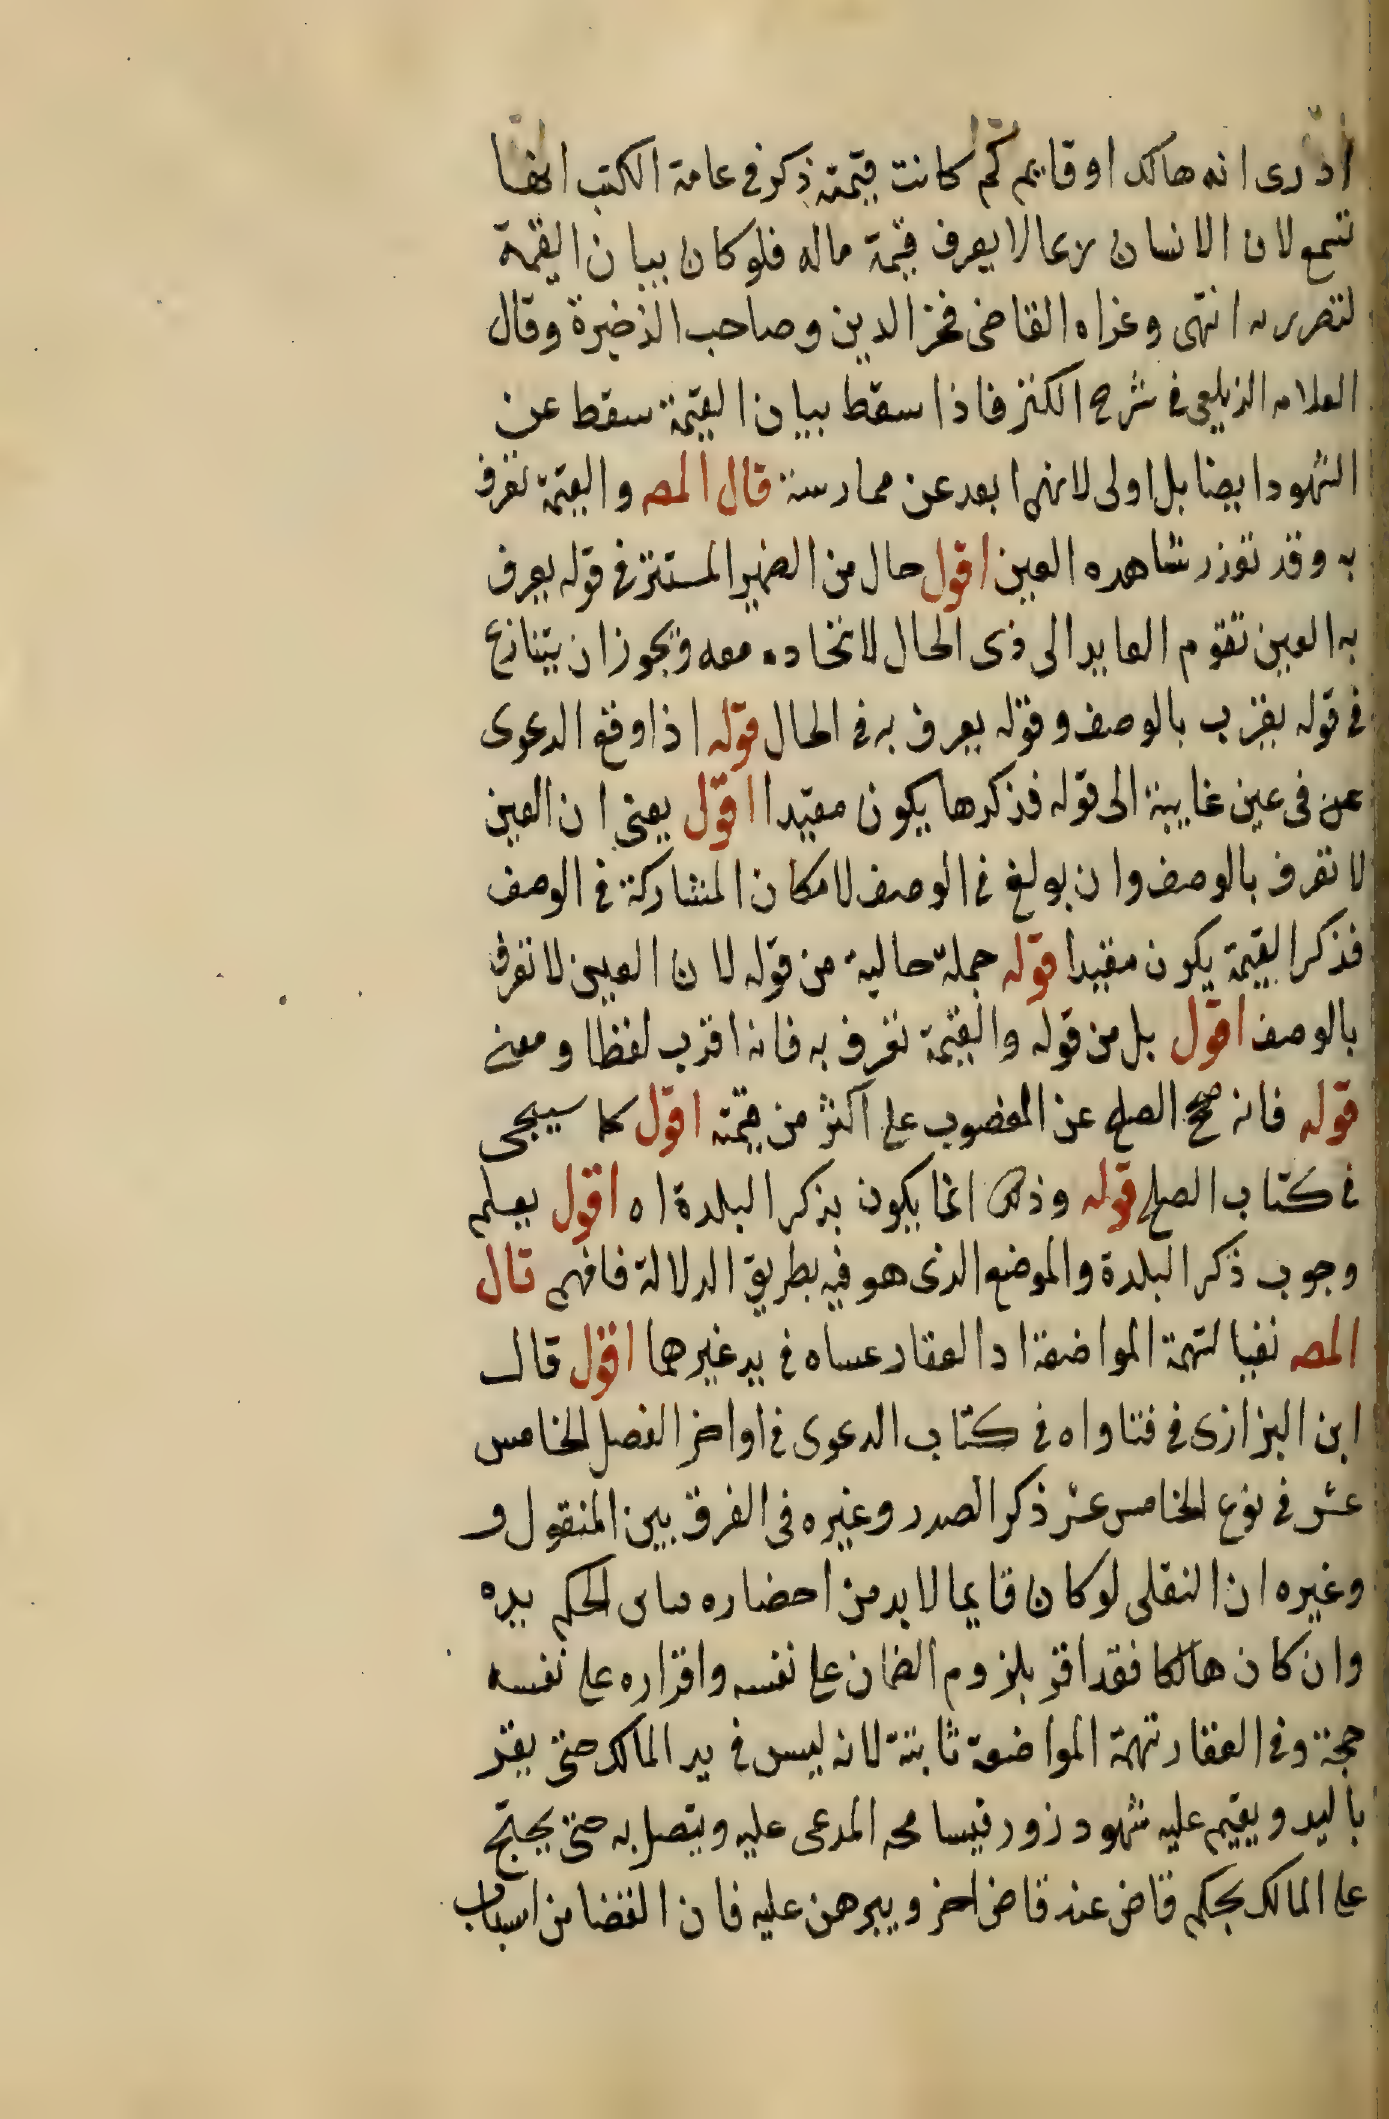 ادرى انه هالك او قايم كم كانت قيمته ذكر فى عامة الكتب انها
تسمع لان الانسان ربما لا يعرف قيمة ماله فلو كان بيان القيمة
لتضرر به انتهى وعزاه القاضى فخر الدين وصاحب الذخيرة وقال
العلامه الزيلعى فى شرح الكنز فاذا سقط بيان القيمة سقط عن
الشهود ايضا بل اولى لانهم ابعد عن ممارسته قال المص والقيمة تعرف
به وقد تعذر مشاهده العين اقول حال من الضمير المستتر فى قوله يعرف
به العين تقوم العايد الى ذى الحال لاتحاده معه ويجوز ان يتنازع
فى قوله يقرب بالوصف وقوله يعرف به فى الحال قوله اذا وقع الدعوى
عن فى عين غايبة الى قوله فذكرها يكون مقيدا اقول يعنى ان العين
لا تعرف بالوصف وان بولغ فى الوصف لامكان المشاركة فى الوصف
فذكر القيمة يكون مفيدا قوله جملة حالية من قوله لان العين لا تعرف
بالوصف اقول بل من قوله والقيمة تعرف به فانه اقرب لفظا ومعنى
قوله فانه صح الصلح عن المغصوب على اكثر من قيمته اقول كما سيجى
فى كتاب الصلح قوله وذلك انما يكون بذكر البلدة اه اقول يعلم
وجوب ذكر البلدة والموضع الذى هو فيه بطريق الدلالة فافهم قال
المص نفيا لتهمة المواضعة اذ العقار عساه فى يد غيرهما اقول قال
ابن البزازى فى فتاواه فى كتاب الدعوى فى اواخر الفصل الخامس
عشر فى نوع الخامس عشر ذكر الصدر وغيره فى الفرق بين المنقول و
وغيره ان النقلى لو كان قايما لا بد من احضاره الحكم بيده
وان كان هالكا فقد اقر بلزوم الضمان على نفسه واقراره على نفسه
حجة وفى العقار تهمة المواضعة ثابتة لانه ليس فى يد المالك حتى يقر
باليد ويقيم عليه شهود زور فيسامحه المدعى عليه ويتصل به حتى يحتج
على المالك بحكم قاض عند قاض اخر ويبرهن عليه فان القضا من اسباب